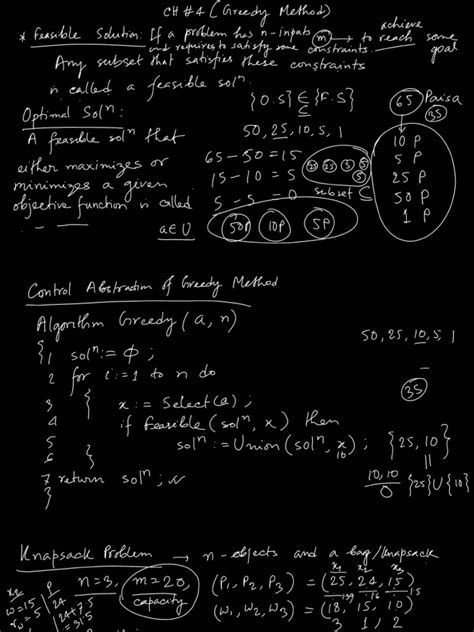 CH #4 (Greedy Method)
* Feasible Solution: If a problem has n-inputs
and requires to satisfy some constraints (m) → to reach some goal
achieve
Any subset that satisfies these constraints
is called a feasible solⁿ.
{O.S} ∈ {F.S}
⊆
65 Paisa
35
Optimal Solⁿ:
50, 25, 10, 5, 1
A feasible solⁿ that
65 - 50 = 15
either maximizes or
15 - 10 = 5
minimizes a given
5 - 5 = 0
subset ⊆
objective function is called
50P 10P 5P
a∈U
10 P
5 P
25 P
50 P
1 P
Control Abstraction of Greedy Method
Algorithm Greedy (a, n)
{1 solⁿ := Ø ;
2 for i:=1 to n do
3 { x := Select(a) ;
4 if feasible (solⁿ, x) then
5 solⁿ := Union (solⁿ, x) ;
10
6 }
7 return solⁿ ;
}
50, 25, 10, 5, 1
35
{25, 10}
||
{25} U {10}
10,10
0
Knapsack Problem → n-objects and a bag/knapsack
n = 3, m = 20,
capacity
x₁ x₂ x₃
(P₁, P₂, P₃) = (25, 24, 15)
(W₁, W₂, W₃) = (18, 15, 10)
3 1 2
x₂
w=15
P
24
24+7.5
= 31.5